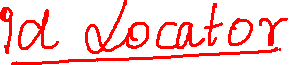 Id Locator